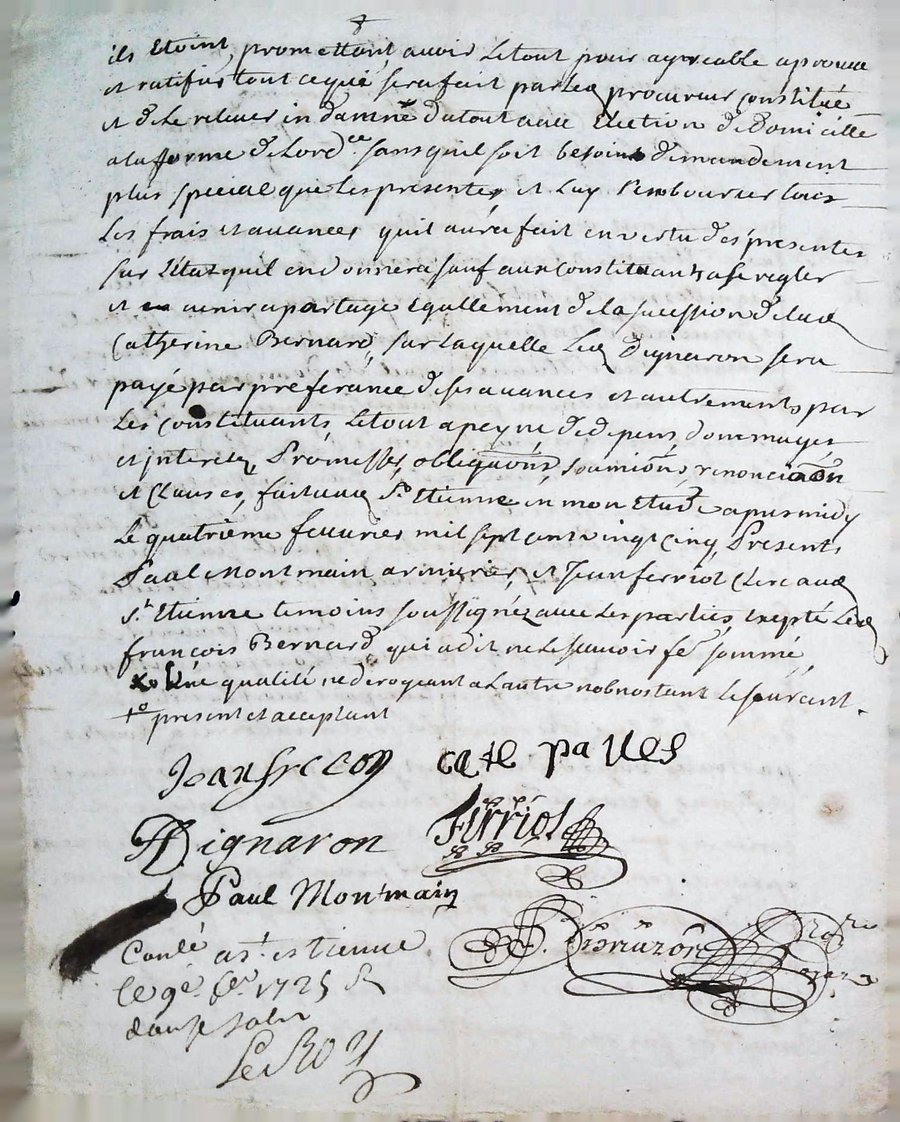 ils Etoint promettant avoir Letout pour agreable aprouver
et ratifier tout ceque sera fait par Led procureur Constitué
et de Le relever indamne dutout avec Election de domicille
a la forme de Lord.ce sans quil soit besoin de mandement
plus special que Les presentes et Luy Rembourser tous
Les frais et avances quil aura fait en vertu des presentes
sur Letat quil en donnera sauf aux Constituants a se regler
et venir a partage Egallement de la sucession de lad
Catherine Bernard, sur laquelle Led Dignaron sera
payé par preferance de ses avances et autrements par
Les Constituants, Letout a peyne de depens, dommages
et interets, Promesses, obligaons, soumions, renonciaons
et Clauses, fait aud St. Etienne en mon Etude apres midy
Le quatrieme fevrier mil sept cent vingt cinq, Presents
Paul Montmain armurier, et Jean ferriot Clerc aud
St. Etienne temoins soussignez avec Les parties, Excepté Led
francois Bernard qui a dit ne Le scavoir fe sommé
Une qualité nederogeant a Lautre nobnostant Le surcent
present et acceptant
Jean frecon cate pa ves
Dignaron Ferriot
Paul Montmain
Conlé a st. estienne
le 9e. fer. 1725 R
douse sols
LeRoy